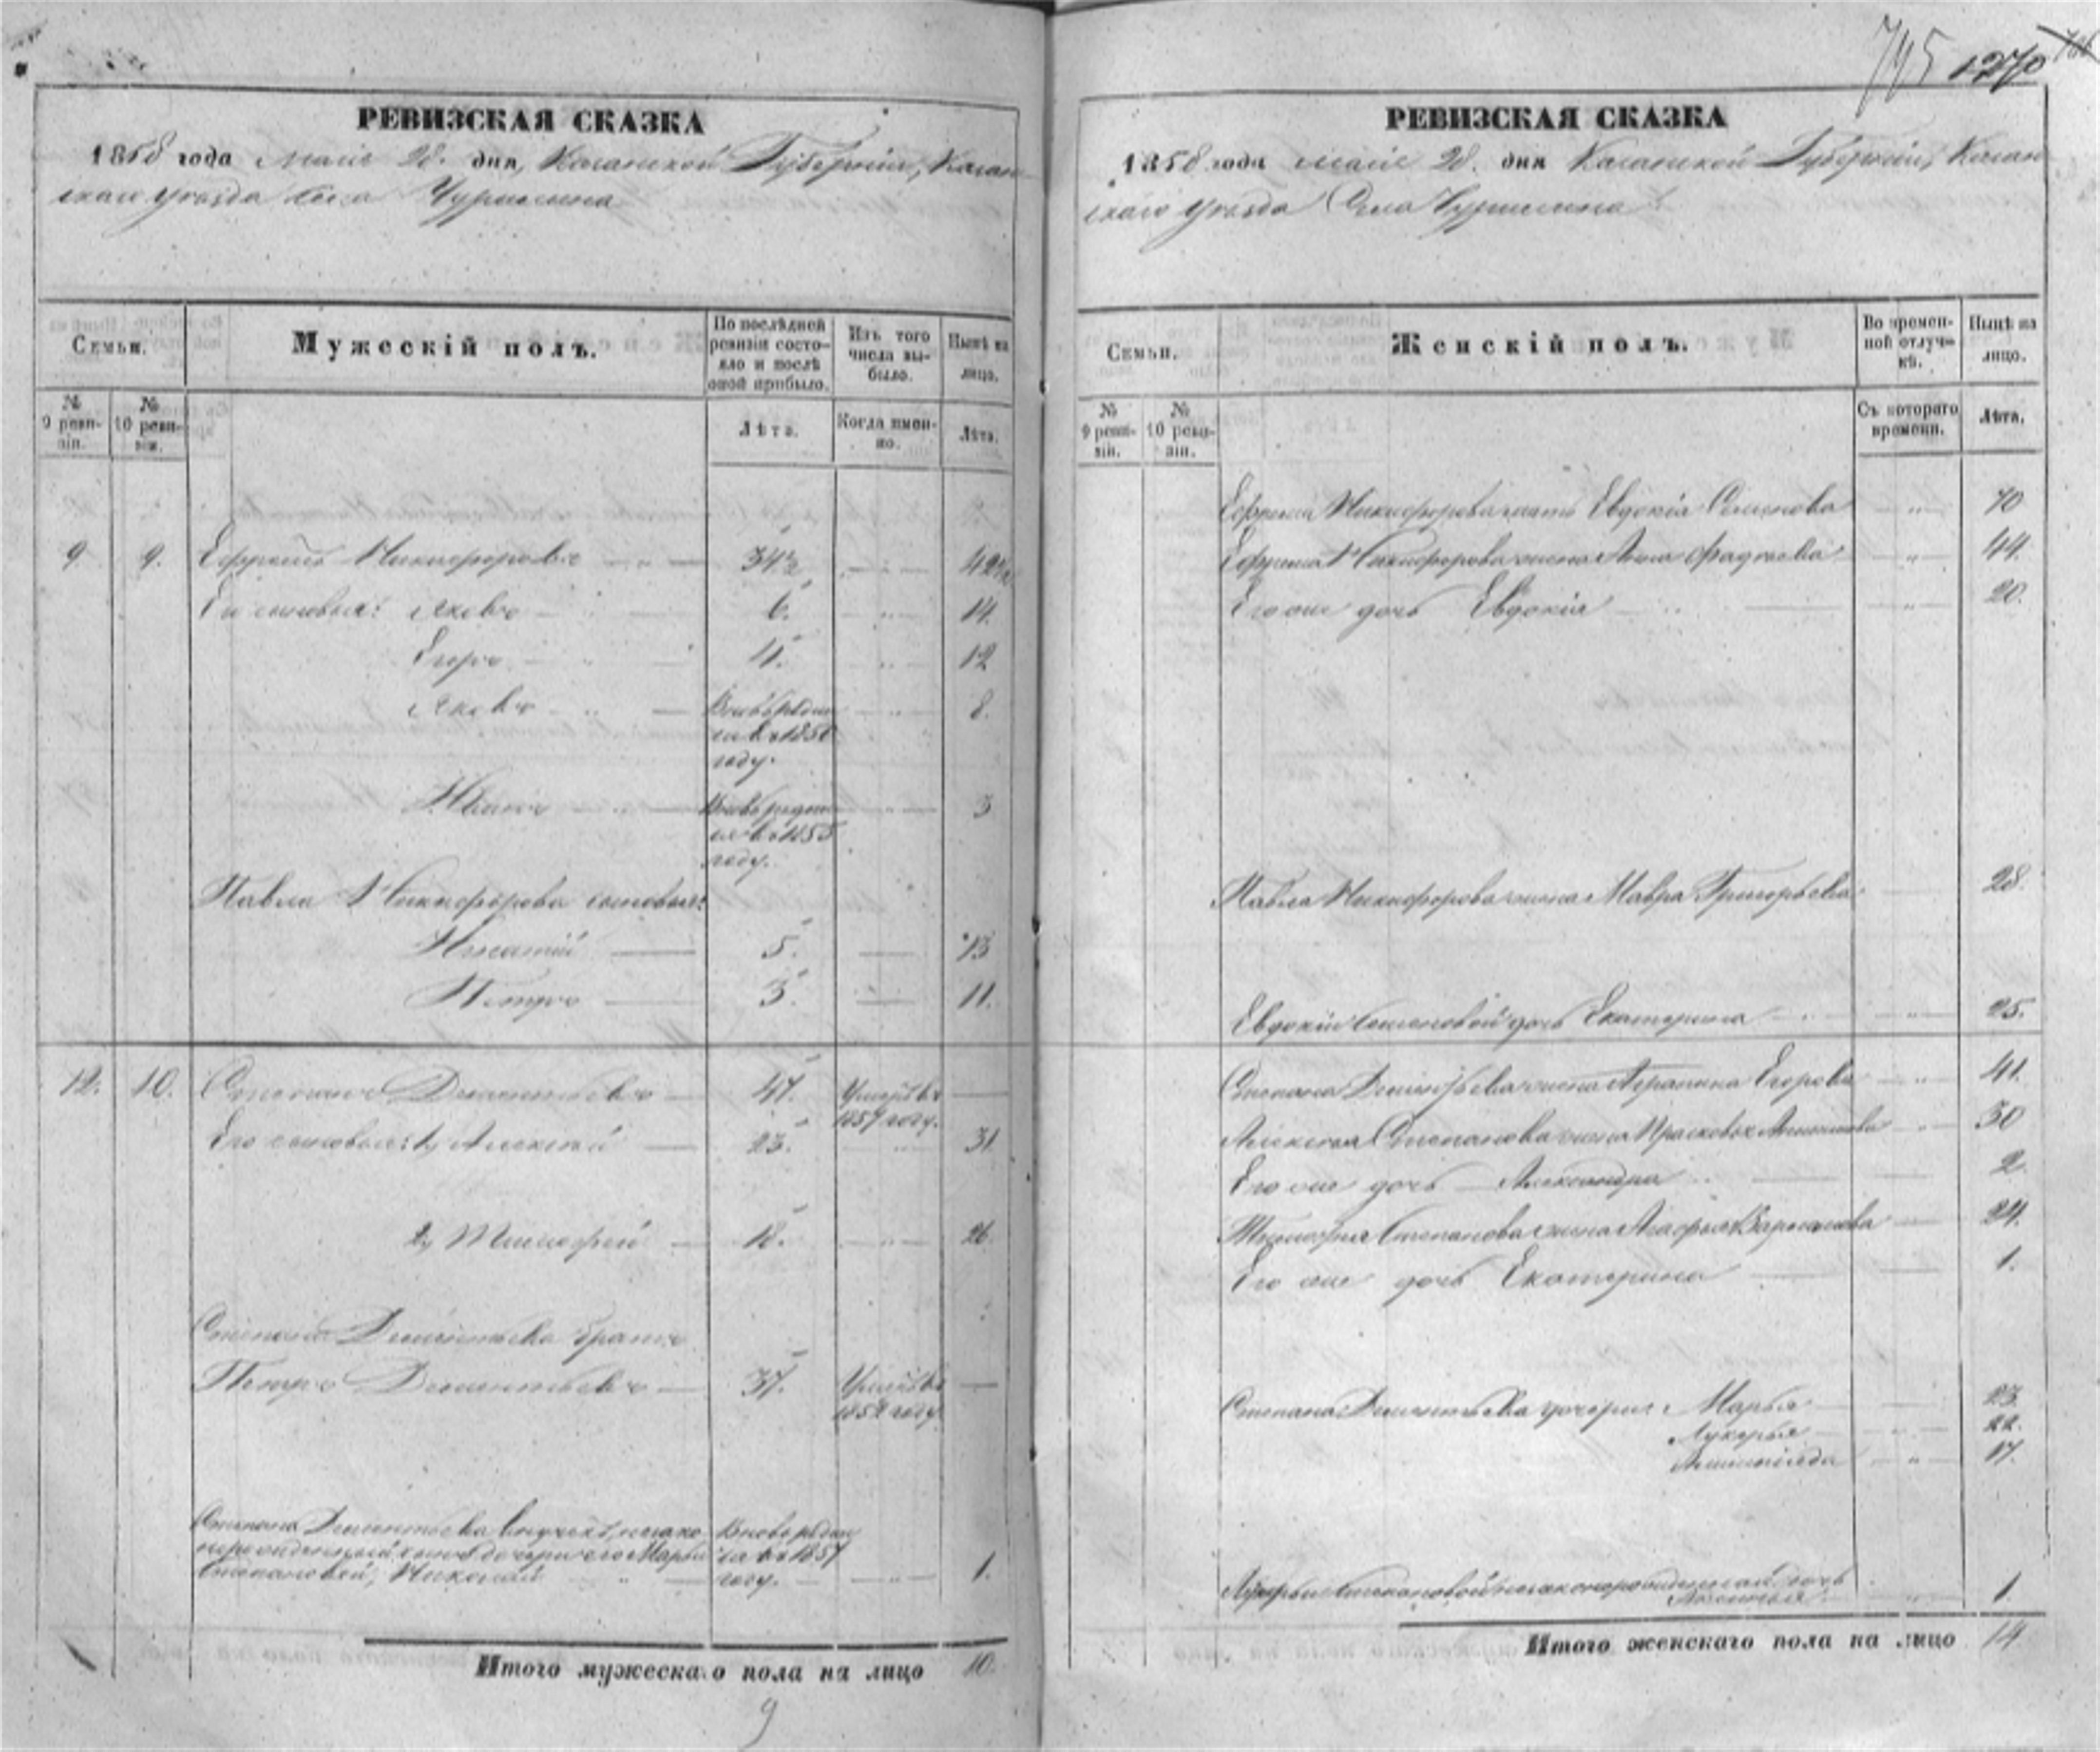 745 1270
РЕВИЗСКАЯ СКАЗКА
1858 года Маія 28. дня, Казанской Губерніи, Казан
скаго уѣзда села Чурилина
Семьи.
Мужескій полъ.
По послѣдней ревизіи состо-
яло и послѣ
оной прибыло.
Изъ того
числа вы-
было.
Нынѣ на
лицо.
№
9 реви-
зіи.
№
10 реви-
зіи.
Лѣта.
Когда имен-
но.
Лѣта.
9 9. Ефремъ Никифоровъ 34½ 42½
Его сыновья: Яковъ 6. 14.
Егоръ 4. 12
Яковъ Вновь родил
ся въ 1850
году. 8.
Иванъ Вновь родил
ся въ 1855
году. 3
Павла Никифорова сыновья:
Игнатій 5. 13
Петръ 3. 11.
12. 10. Степанъ Дементьевъ 47. Умеръ въ
1857 году.
Его сыновья: 1, Алексѣй 23. 31
2, Тимофей 18. 26.
Степана Дементьева братъ
Петръ Дементьевъ 37. Умеръ въ
году
Степана Дементьева внукъ, незако
норожденный сынъ дочери его Марьи
Степановой, Николай Вновь родил
ся въ 1857
году. 1.
Итого мужескаго пола на лицо 10.
9
РЕВИЗСКАЯ СКАЗКА
1858 года Маія 28. дня Казанской Губерніи, Казан
скаго уѣзда Села Чурилина
Семьи.
Женскій полъ.
Во времен-
ной отлуч-
кѣ.
Нынѣ на
лицо.
№
9 реви-
зіи.
№
10 реви-
зіи.
Съ котораго
времени.
Лѣта.
Ефрема Никифорова мать Евдокія Семенова 70
Ефрема Никифорова жена Анна Фадѣева 44.
Его же дочь Евдокія 20.
Павла Никифорова жена Мавра Григорьева 28.
Евдокіи Семеновой дочь Екатерина 25.
Степана Дементьева жена Аграпина Егорова 41.
Алексѣя Степанова жена Прасковья 30
Его же дочь Александра 2.
Тимофея Степанова жена Агафья 24.
Его же дочь Екатерина 1.
Степана Дементьева дочери: Марья 23
Лукерья 22.
17.
Лукерьи Степановой незаконорожденная дочь
1.
Итого женскаго пола на лицо 14